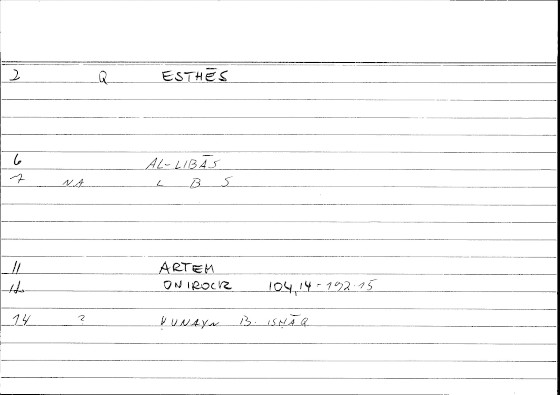 2 Q ESTHĒS
6 AL-LIBĀS
7 NA L B S
11 ARTEM
12 ONIROCR 104,14-192.15
14 ? ḤUNAYN B. ISḤĀQ